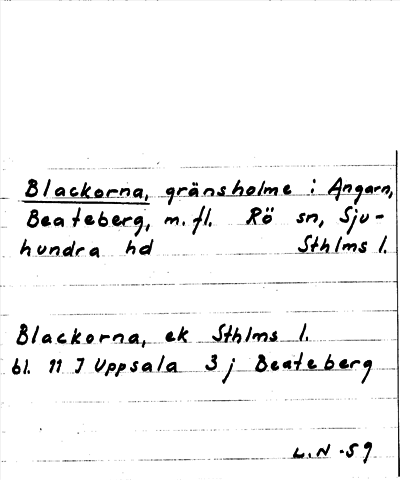 Blackorna, gränsholme i Angarn,
Beateberg, m.fl. Rö sn, Sju-
hundra hd Sthlms l.
Blackorna, ek Sthlms l.
bl. 11 I Uppsala 3 j Beateberg
L.N -59